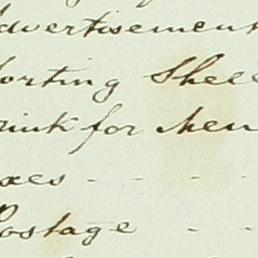 dvertisement
orting Shee
rink for Men
oxes - - - -
Postage - -